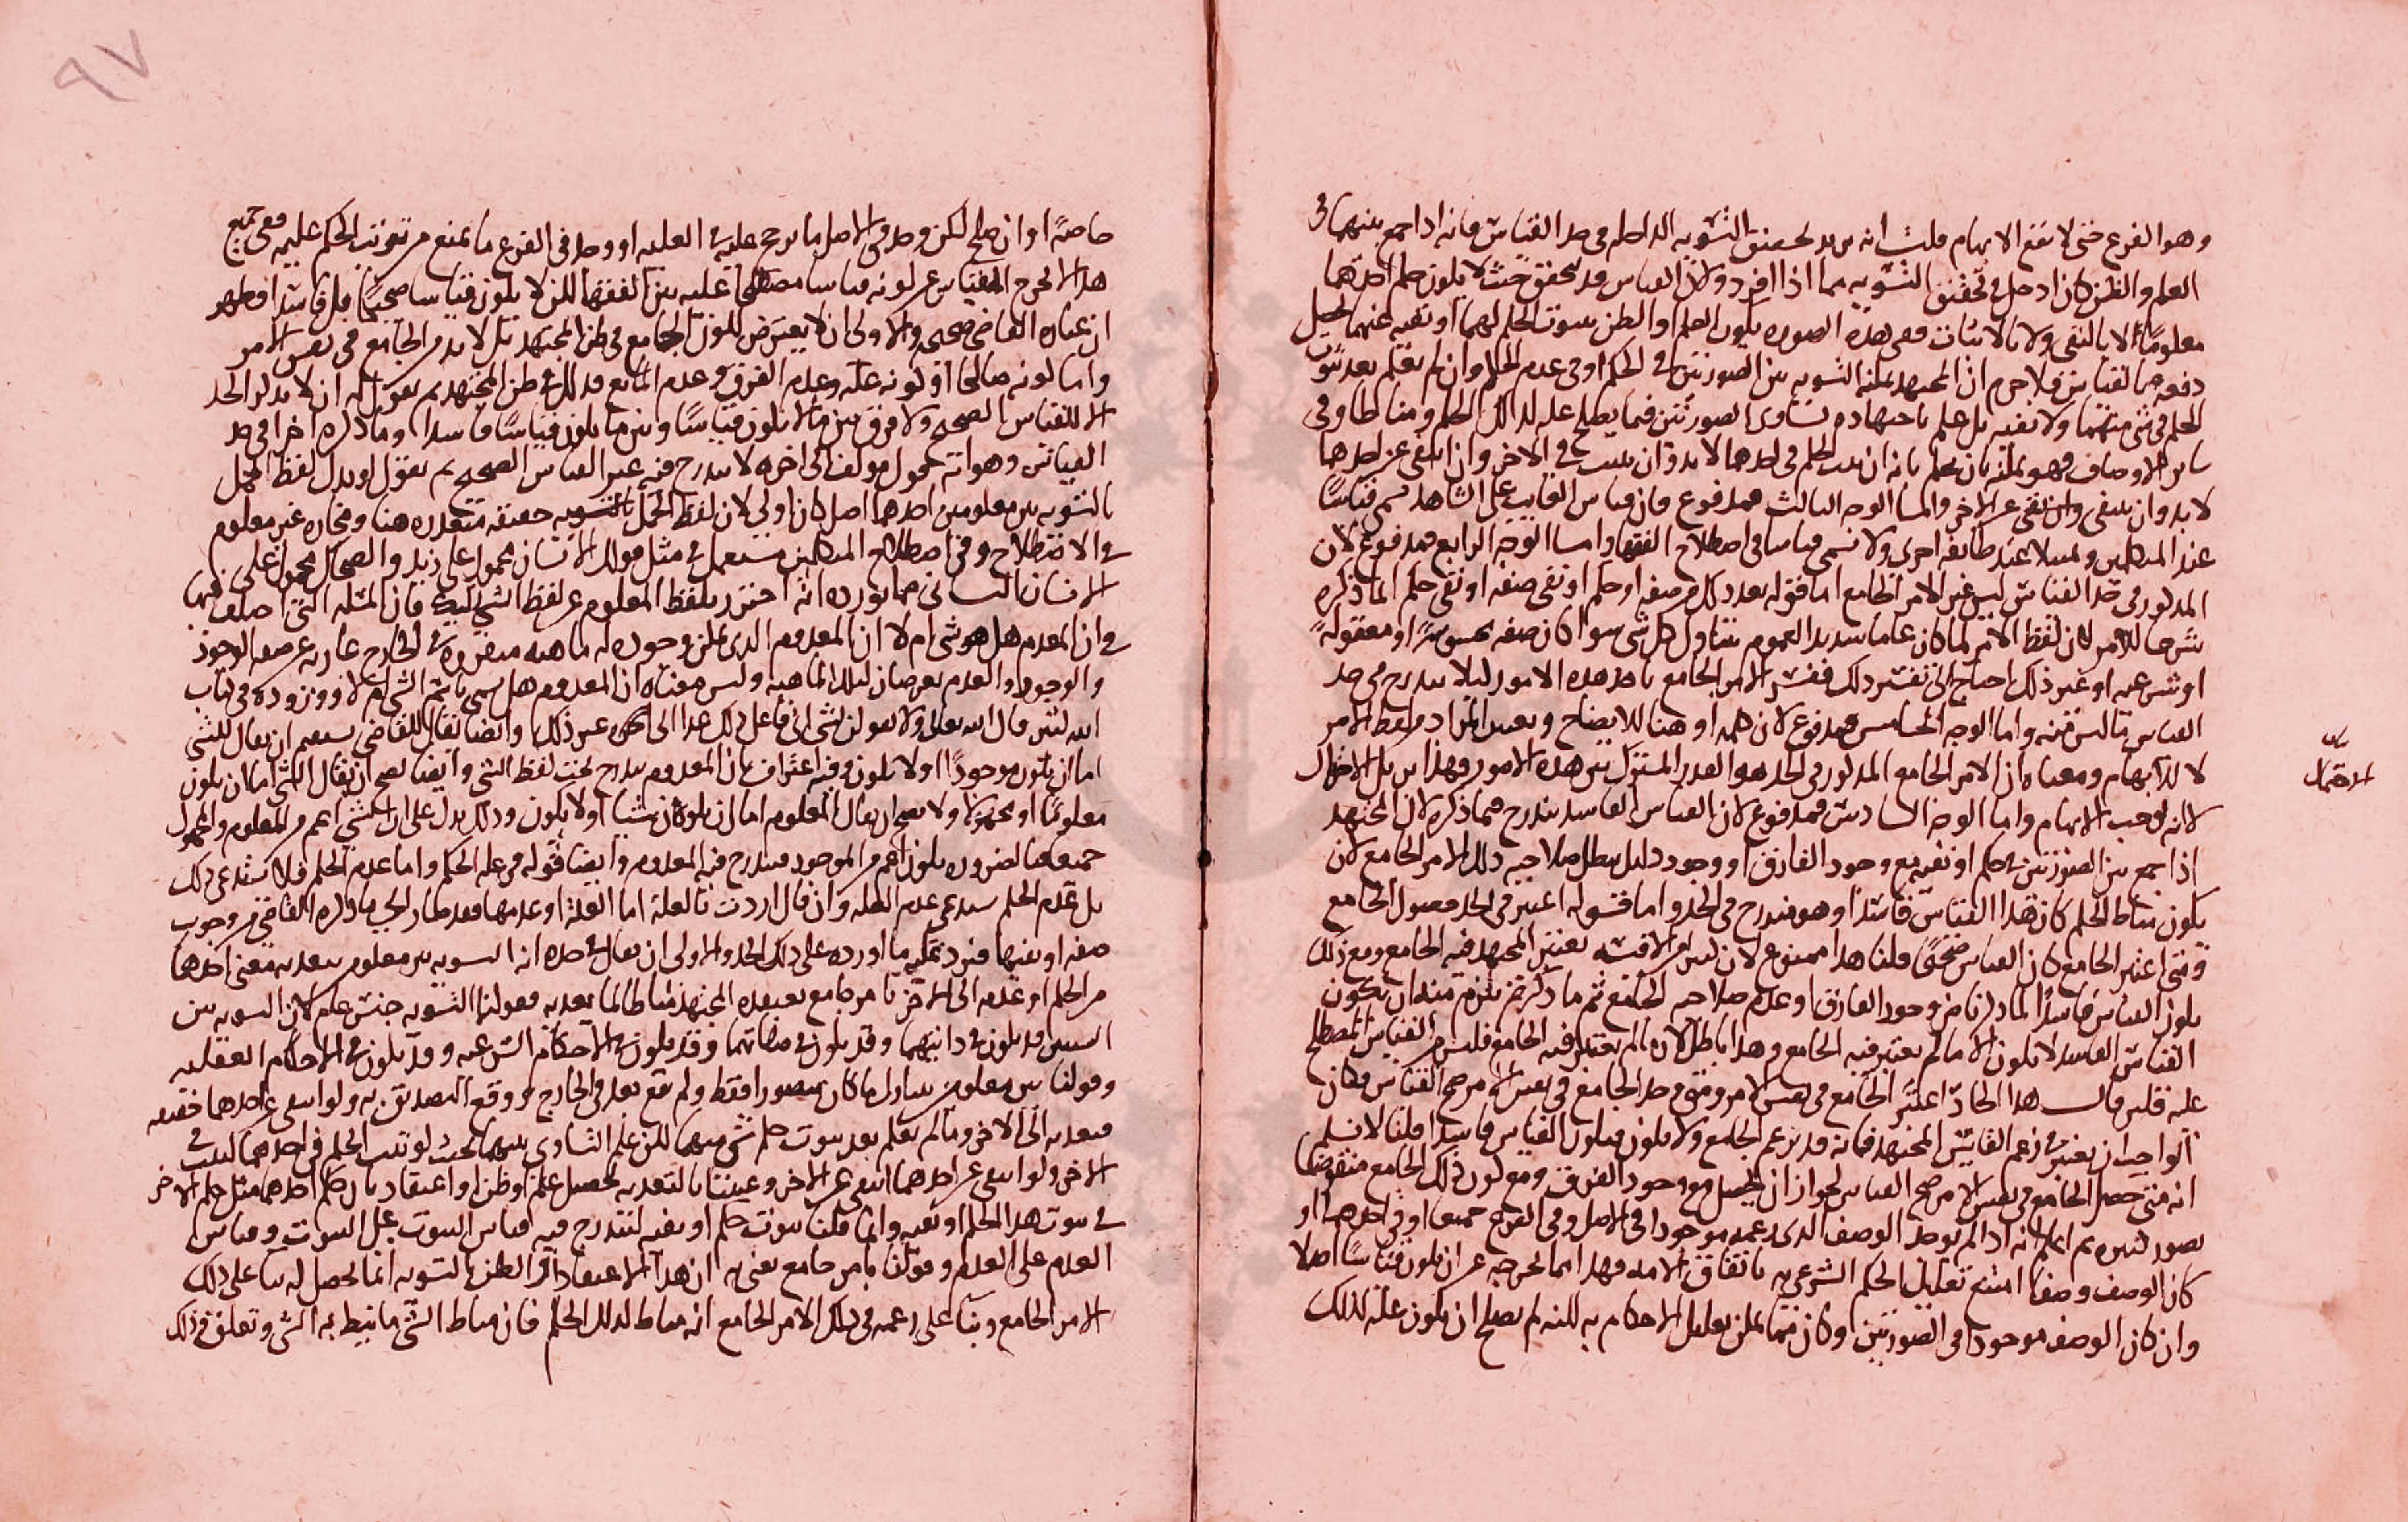 وهو الفرع حتى لا يقع الابهام قلت انه يريد تحقيق التسوية الداخلة في حد القياس فانه اذا جمع بينهما في
العلم والظن كان ادخل في تحقيق التسوية مما اذا افرد ولان القياس قد يتحقق حيث لا يكون حكم احدهما
معلوما لا بالنفي ولا بالاثبات ففي هذه الصورة يكون العلم او الظن بثبوت الحكم لهما او نفيه عنهما
دفعة بالقياس فلا جرم ان المجتهد يمكنه التسوية بين الصورتين في الحكم او في عدم الحكم وان لم يعلم بعد ثبوت
الحكم في شي منهما ولا نفيه بل علم باجتهاده تساوي الصورتين فيما يصلح علة لذلك الحكم ومناطا وفي
ساير الاوصاف فهو يمكنه بان يحكم بانه ان ثبت الحكم في احدهما لا بد وان يثبت في الاخر وان انتفى عن احدهما
لا بد وان ينتفي عن الاخر واما الوجه الثالث فمدفوع فان قياس الغايب على الشاهد سمي قياسا
عند المتكلمين وتمثيلا عند طايفة اخرى ولا تسمى قياسا في اصطلاح الفقها واما الوجه الرابع فمدفوع لان
المذكور في حد القياس ليس غير الامر الجامع اما قوله بعد ذلك من صفة او حكم او نفي صفة او نفي حكم انما ذكره
شرحا للامر لان لفظ الامر لما كان عاما شديد العموم يتناول كل شي سوا كان صفة محسوسة او معقولة
او شرعية او غير ذلك احتاج الى تفسير ذلك ففسر الامر الجامع باحد هذه الامور ليلا يندرج في حد
القياس ما ليس منه واما الوجه الخامس فمدفوع لان كلمة او هنا للايضاح وتعيين المراد من لفظ الامر
لا للابهام ومعناه ان الامر الجامع المذكور في الحد هو القدر المشترك بين هذه الامور فهذا يزيل الاجمال
بيان
الاجمال
لانه يوجب الابهام واما الوجه السادس فمدفوع لان القياس الفاسد يندرج فيما ذكره لان المجتهد
اذا جمع بين الصورتين في حكم او نفيه مع وجود الفارق او وجود دليل يبطل صلاحية ذلك الامر الجامع لان
يكون مناط الحكم كان هذا القياس فاسدا وهو مندرج في الحد واما قوله اعتبر في الحد حصول الجامع
ومتى اعتبر الجامع كان القياس صحيحا قلنا هذا ممنوع لان كثيرا من الاقيسة يعتبر المجتهد فيه الجامع ومع ذلك
يكون القياس فاسدا لما ذكرنا من وجود الفارق او عدم صلاحية الجامع ثم ما ذكرتم يلزم منه ان يكون
القياس الفاسد لا يكون الا ما لم يعتبر فيه الجامع وهذا باطل لان ما لم يعتبر فيه الجامع فليس من القياس المصطلح
عليه فليس قال هذا الحاد اعتبر الجامع في نفس الامر ومتى وجد الجامع في نفس الامر صح القياس فكان
الواجب ان يعتبر في زعم القايس المجتهد فانه قد يزعم الجامع ولا يكون فيكون القياس فاسدا قلنا لا نسلم
انه متى حصل الجامع في نفس الامر صح القياس لجواز ان يحصل مع وجود الفرق ومع كون ذلك الجامع منقوضا
بصور كثيرة ثم اعلم انه اذا لم يوجد الوصف الذي زعمه موجودا في الاصل وفي الفرع جميعا او في احدهما او
كان الوصف وصفا امتنع تعليل الحكم الشرعي به باتفاق الامة فهذا انما يخرجه عن ان يكون قياسا اصلا
وان كان الوصف موجودا في الصورتين وكان مما يمكن تعليل الاحكام به لكنه لم يصلح ان يكون علة لذلك
٩٧
خاصة او ان صلح لكن وجد في الاصل ما يرجح عليه في العلية او وجد في الفرع ما يمنع من ترتب الحكم عليه ففي جميع
هذا لا يخرج القياس عن كونه قياسا مصطلحا عليه بين الفقها لكن لا يكون قياسا صحيحا بل فاسدا فظهر
ان عبارة القاضي صحيحة والاولى ان لا يعترض لكون الجامع في ظن المجتهد بل لا بد من الجامع في نفس الامر
واما كونه صالحا او كونه علة وعدم الفرق وعدم المانع فذلك في ظن المجتهد ثم نقول له ان لا يذكر الحد
الا للقياس الصحيح ولا فرق بين ما لا يكون قياسا وبين ما يكون قياسا فاسدا وما ذكره اخرا في حد
القياس وهو انه قول مولف الى اخره لا يندرج فيه غير القياس الصحيح ثم نقول لو بدل لفظ الحمل
بالتسوية بين معلومين احدهما اصل كان اولى لان لفظ الحمل حقيقته متعذرة هنا ومجازه غير معلوم
في الاصطلاح وفي اصطلاح المتكلمين مستعمل في مثل قولك الانسان محمول على زيد والضحاك محمول على
الانسان الثاني مما نورده انه احترز بلفظ المعلوم عن لفظ الشي فان المسلة التي اختلف فيها
في ان المعدوم هل هو شي ام لا ان المعدوم الذي يمكن وجوده له ماهية متقررة في الخارج عارية عن صفة الوجود
والوجود والعدم يعرضان لتلك الماهية وليس معناه ان المعدوم هل يسمى باسم الشي ام لا وورد وروده في كتاب
الله كثير قال الله تعالى ولا تقولن لشي اني فاعل ذلك غدا الى غير ذلك وايضا نقل القاضي يستقيم ان يقال للشي
اما ان يكون موجودا او لا يكون وفيه اعتراف بان المعدوم يندرج تحت لفظ الشي وايضا يصح ان يقال الشي اما ان يكون
معلوما او مجهولا ولا يصح ان يقال المعلوم اما ان يكون شيا او لا يكون وذلك يدل على ان الشي اعم من المعلوم والمجهول
جميعا فبالضرورة يكون اعم من الموجود فيندرج فيه المعدوم وايضا قوله من علة الحكم واما عدم الحكم فلا يستدعي ذلك
بل عدم الحكم يستدعي عدم العلة وان قال اردت بالعلة اما العلة او عدمها فقد صار الحد ما ذكره القاضي من وجوب
صفة او نفيها فيرد عليه ما اورده على ذلك الحد والاولى ان يقال في حده انه التسوية بين معلومين بتعدية معنى احدهما
من الحكم او عدمه الى الاخر بامر جامع يعتقده المجتهد مناطا لما يعديه فقولنا التسوية جنس عام لان التسوية بين
الشيين قد يكون في ذاتيهما وقد يكون في صفاتهما وقد يكون في الاحكام الشرعية وقد يكون في الاحكام العقلية
وقولنا بين معلومين يتناول ما كان متصورا فقط ولم يقع بعد في الخارج ووقع التصديق به ولو انتفى عن احدهما حقيقة
فتعديه الى الاخر وما لم يعلم بعد ثبوت حكم شي منهما لكن علم التساوي بينهما بحيث لو ثبت الحكم في احدهما لثبت في
الاخر ولو انتفى عن احدهما انتفى عن الاخر وعنينا بالتعدية تحصيل علم او ظن او اعتقاد بان حكم احدهما مثل حكم الاخر
في ثبوت هذا الحكم او نفيه وانما قلنا ثبوت حكم او نفيه ليندرج فيه قياس الثبوت على الثبوت وقياس
العدم على العدم وقولنا بامر جامع يعني به ان هذا الاعتقاد او الظن بالتسوية انما يحصل له بنا على ذلك
الامر الجامع وبنا على زعمه في ذلك الامر الجامع انه مناط لذلك الحكم فان مناط الشي ما نيط به الشي وتعلق وذلك